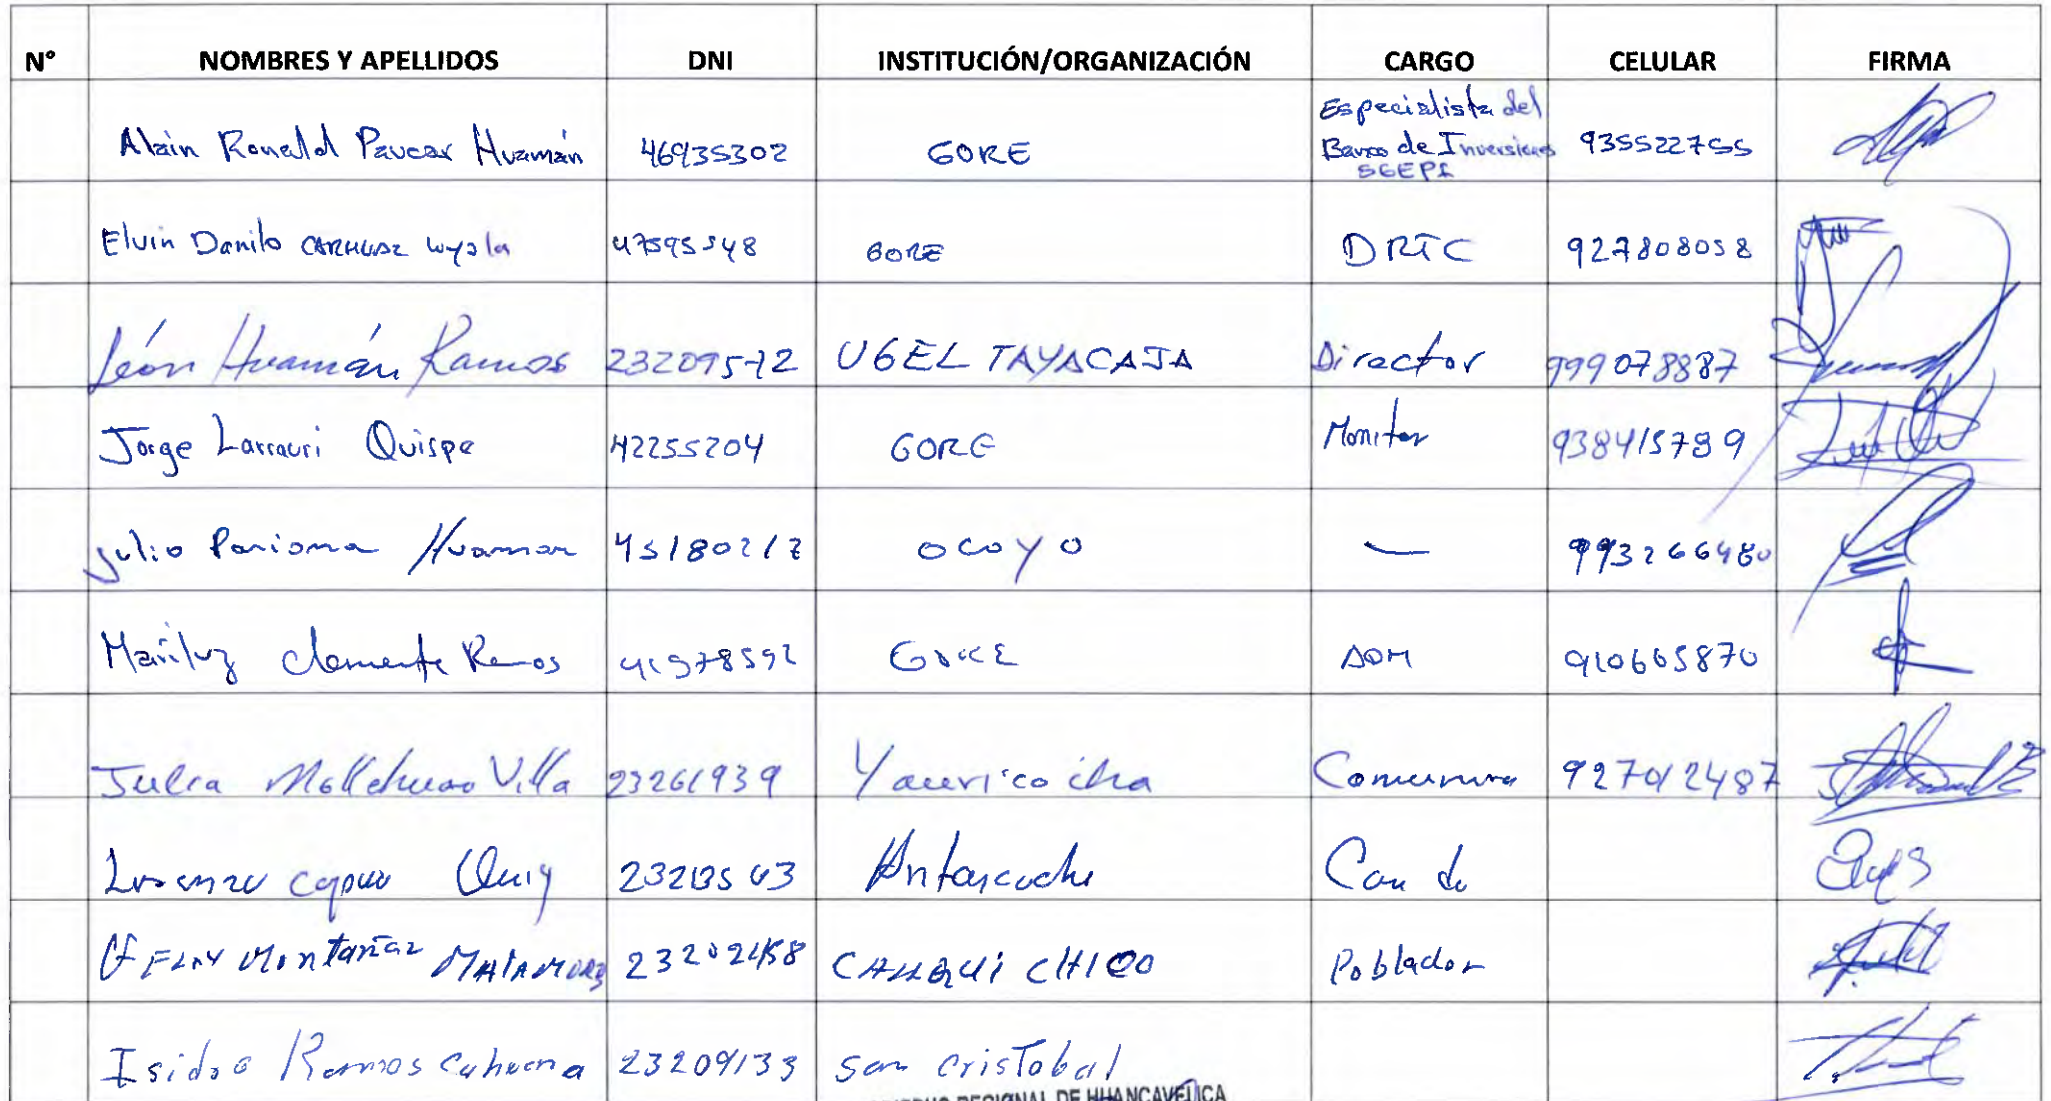 N° NOMBRES Y APELLIDOS DNI INSTITUCIÓN/ORGANIZACIÓN CARGO CELULAR FIRMA
Alain Ronald Paucar Huamán 46935302 GORE Especialista del Banco de Inversiones SGEPI 935522755
Elvin Danilo 47595548 GORE DRTC 927808058
León Huamán Ramos 23209572 UGEL TAYACAJA Director 999078887
Jorge Larrauri Quispe 42255204 GORE Monitor 938415789
Julio Pariona Huaman 45180217 OCOYO — 993266480
Mariluz Clemente Ramos 41978592 GORE ADM 910665870
Julia Villa 23261939 Yauricocha Comunera 927012487
Antaccocha
Montañez MATAMOROS CALLQUI CHICO Poblador
Isidro Ramos Cahuana 23209133 San Cristobal
REGIONAL DE HUANCAVELICA